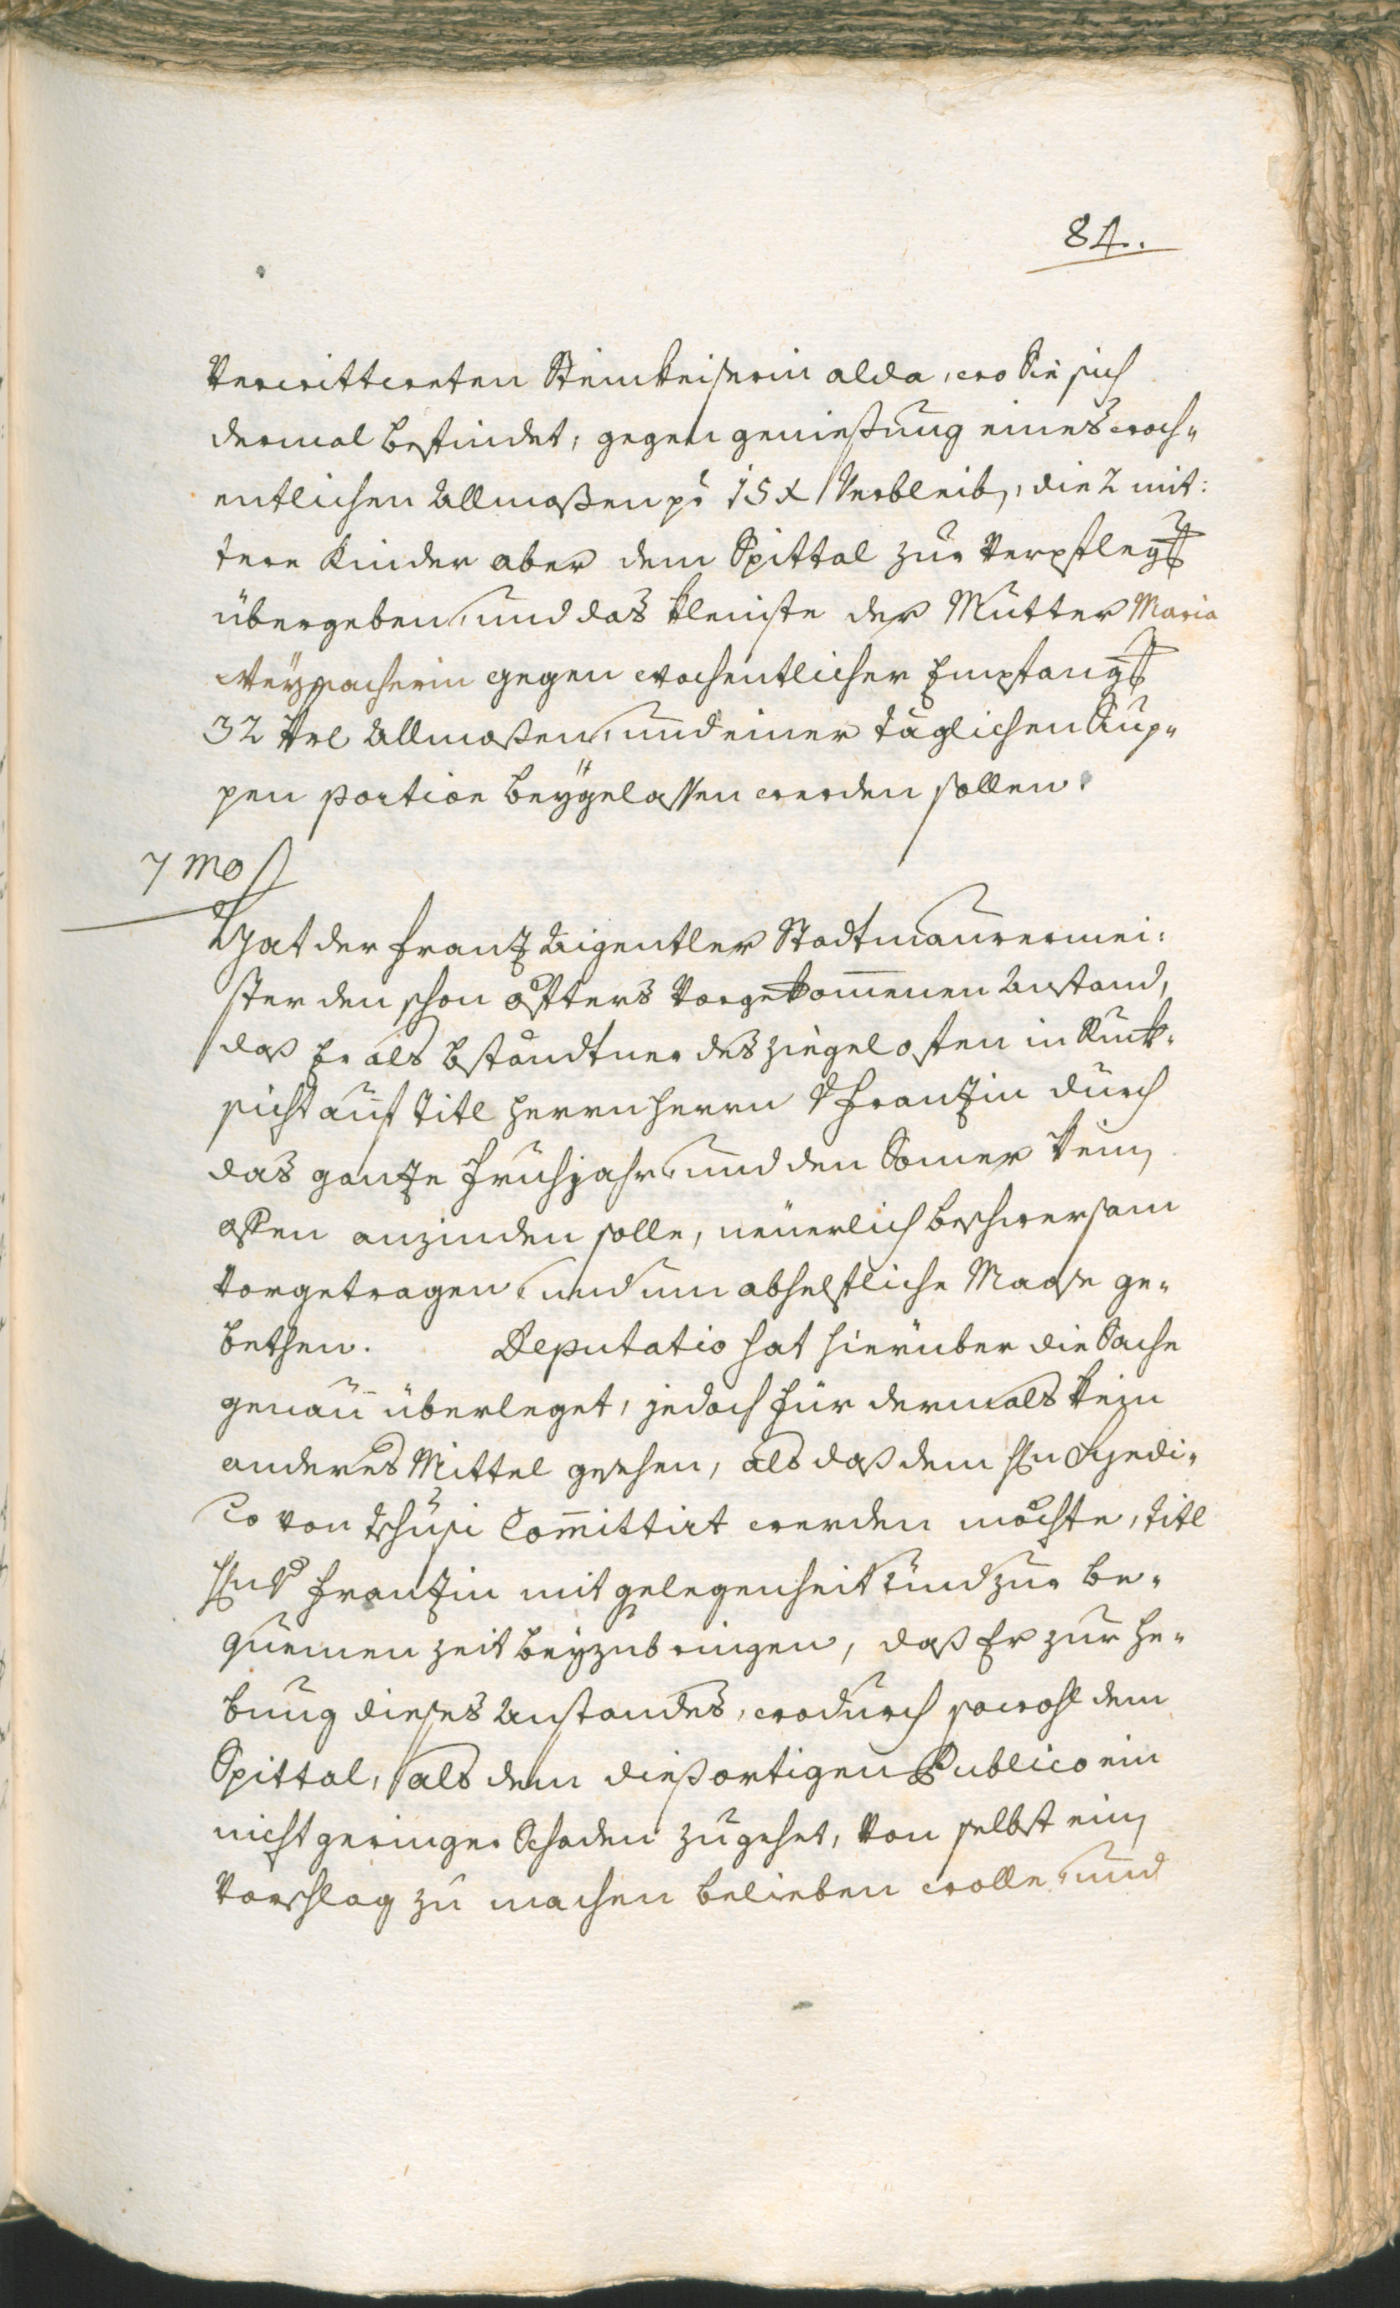 84.
Verwittweten Steinkeiserin alda, wo Sie sich
dermal befindet, gegen genießung eines woch„
entlichen Allmoßen pr 15 x Verbleib, die 2 mit:
tere Kinder aber dem Spittal zur Verpfleg
übergeben, und das kleinste der Mutter Maria
gegen wochentlicher Empfang
32 Allmoßen, und einer täglichen Sup„
pen portion beÿgelassen werden sollen.
7mo
Hat der Frantz Aigentler Stadtmaurermei:
ster den schon öffters Vorgekom̅enen Anstand,
daß Er als bständtner des Ziegelofen in Ruck„
sicht auf Titl Herrn Herrn v Frantzin durch
das gantze Frühjahr, und den Som̅er kein
offen anzünden solle, neüerlich beschwersam
Vorgetragen, und um abhelfliche Maase ge„
bethen. Deputatio hat hierüber die Sache
genau überleget, jedoch für dermals kein
anderes Mittel gesehen, als daß dem Hn Syndi„
co von Com̅ittirt werden möchte, Titl
Hn v Frantzin mit gelegenheit, und zur be„
quemen Zeit beÿzubringen, daß Er zur he„
bung dieses Anstandes, wodurch sowohl dem
Spittal, als dem dießortigen Publico ein
nicht geringer Schaden zugehet, Von selbst ein
Vorschlag zu machen belieben wolle, und